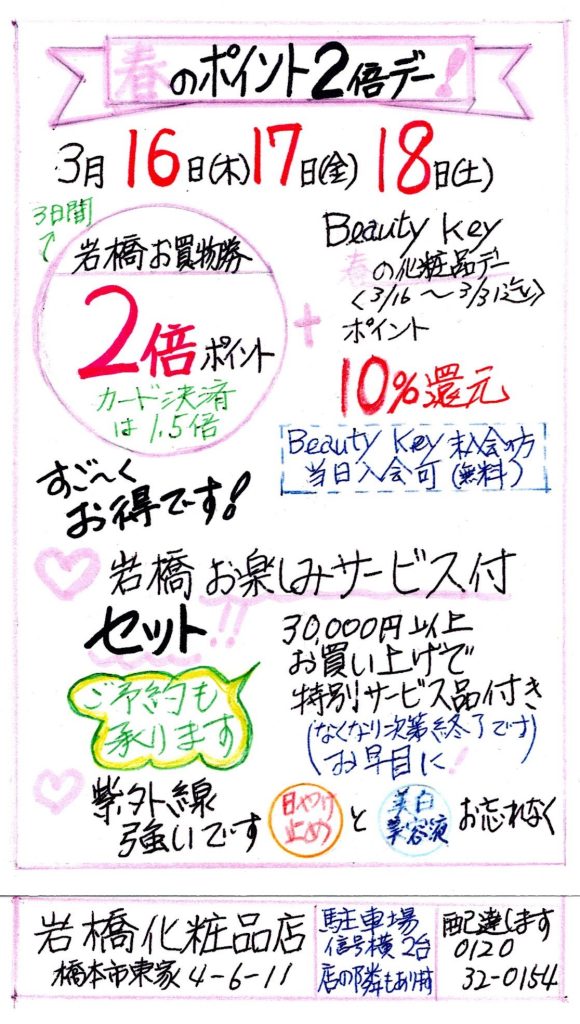 春のポイント2倍デー！
3月16日(木)17日(金)18日(土)
3日間
岩橋お買物券
2倍ポイント
カード決済
は1.5倍
+
Beauty Key
春の化粧品デー
<3/16～3/31迄>
ポイント
10%還元
Beauty Key 未入会の方
当日入会可(無料)
すご～く
お得です！
岩橋お楽しみサービス付
セット!!
30,000円以上
お買い上げで
特別サービス品付き
(なくなり次第終了です)
お早目に！
ご予約も
承ります
紫外線
強いです
日やけ
止め
と
美白
美容液
お忘れなく
岩橋化粧品店
橋本市東家4-6-11
駐車場
信号横2台
店の隣もあります
配達します
0120
32-0154